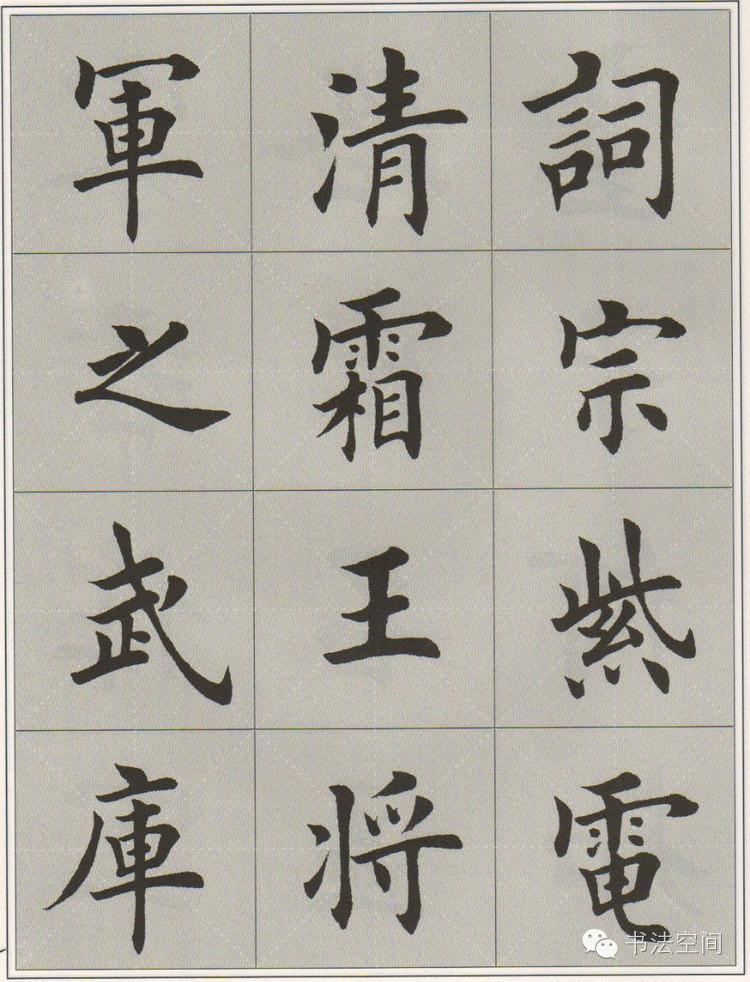 詞宗紫電
清霜王将
軍之武庫
书法空间